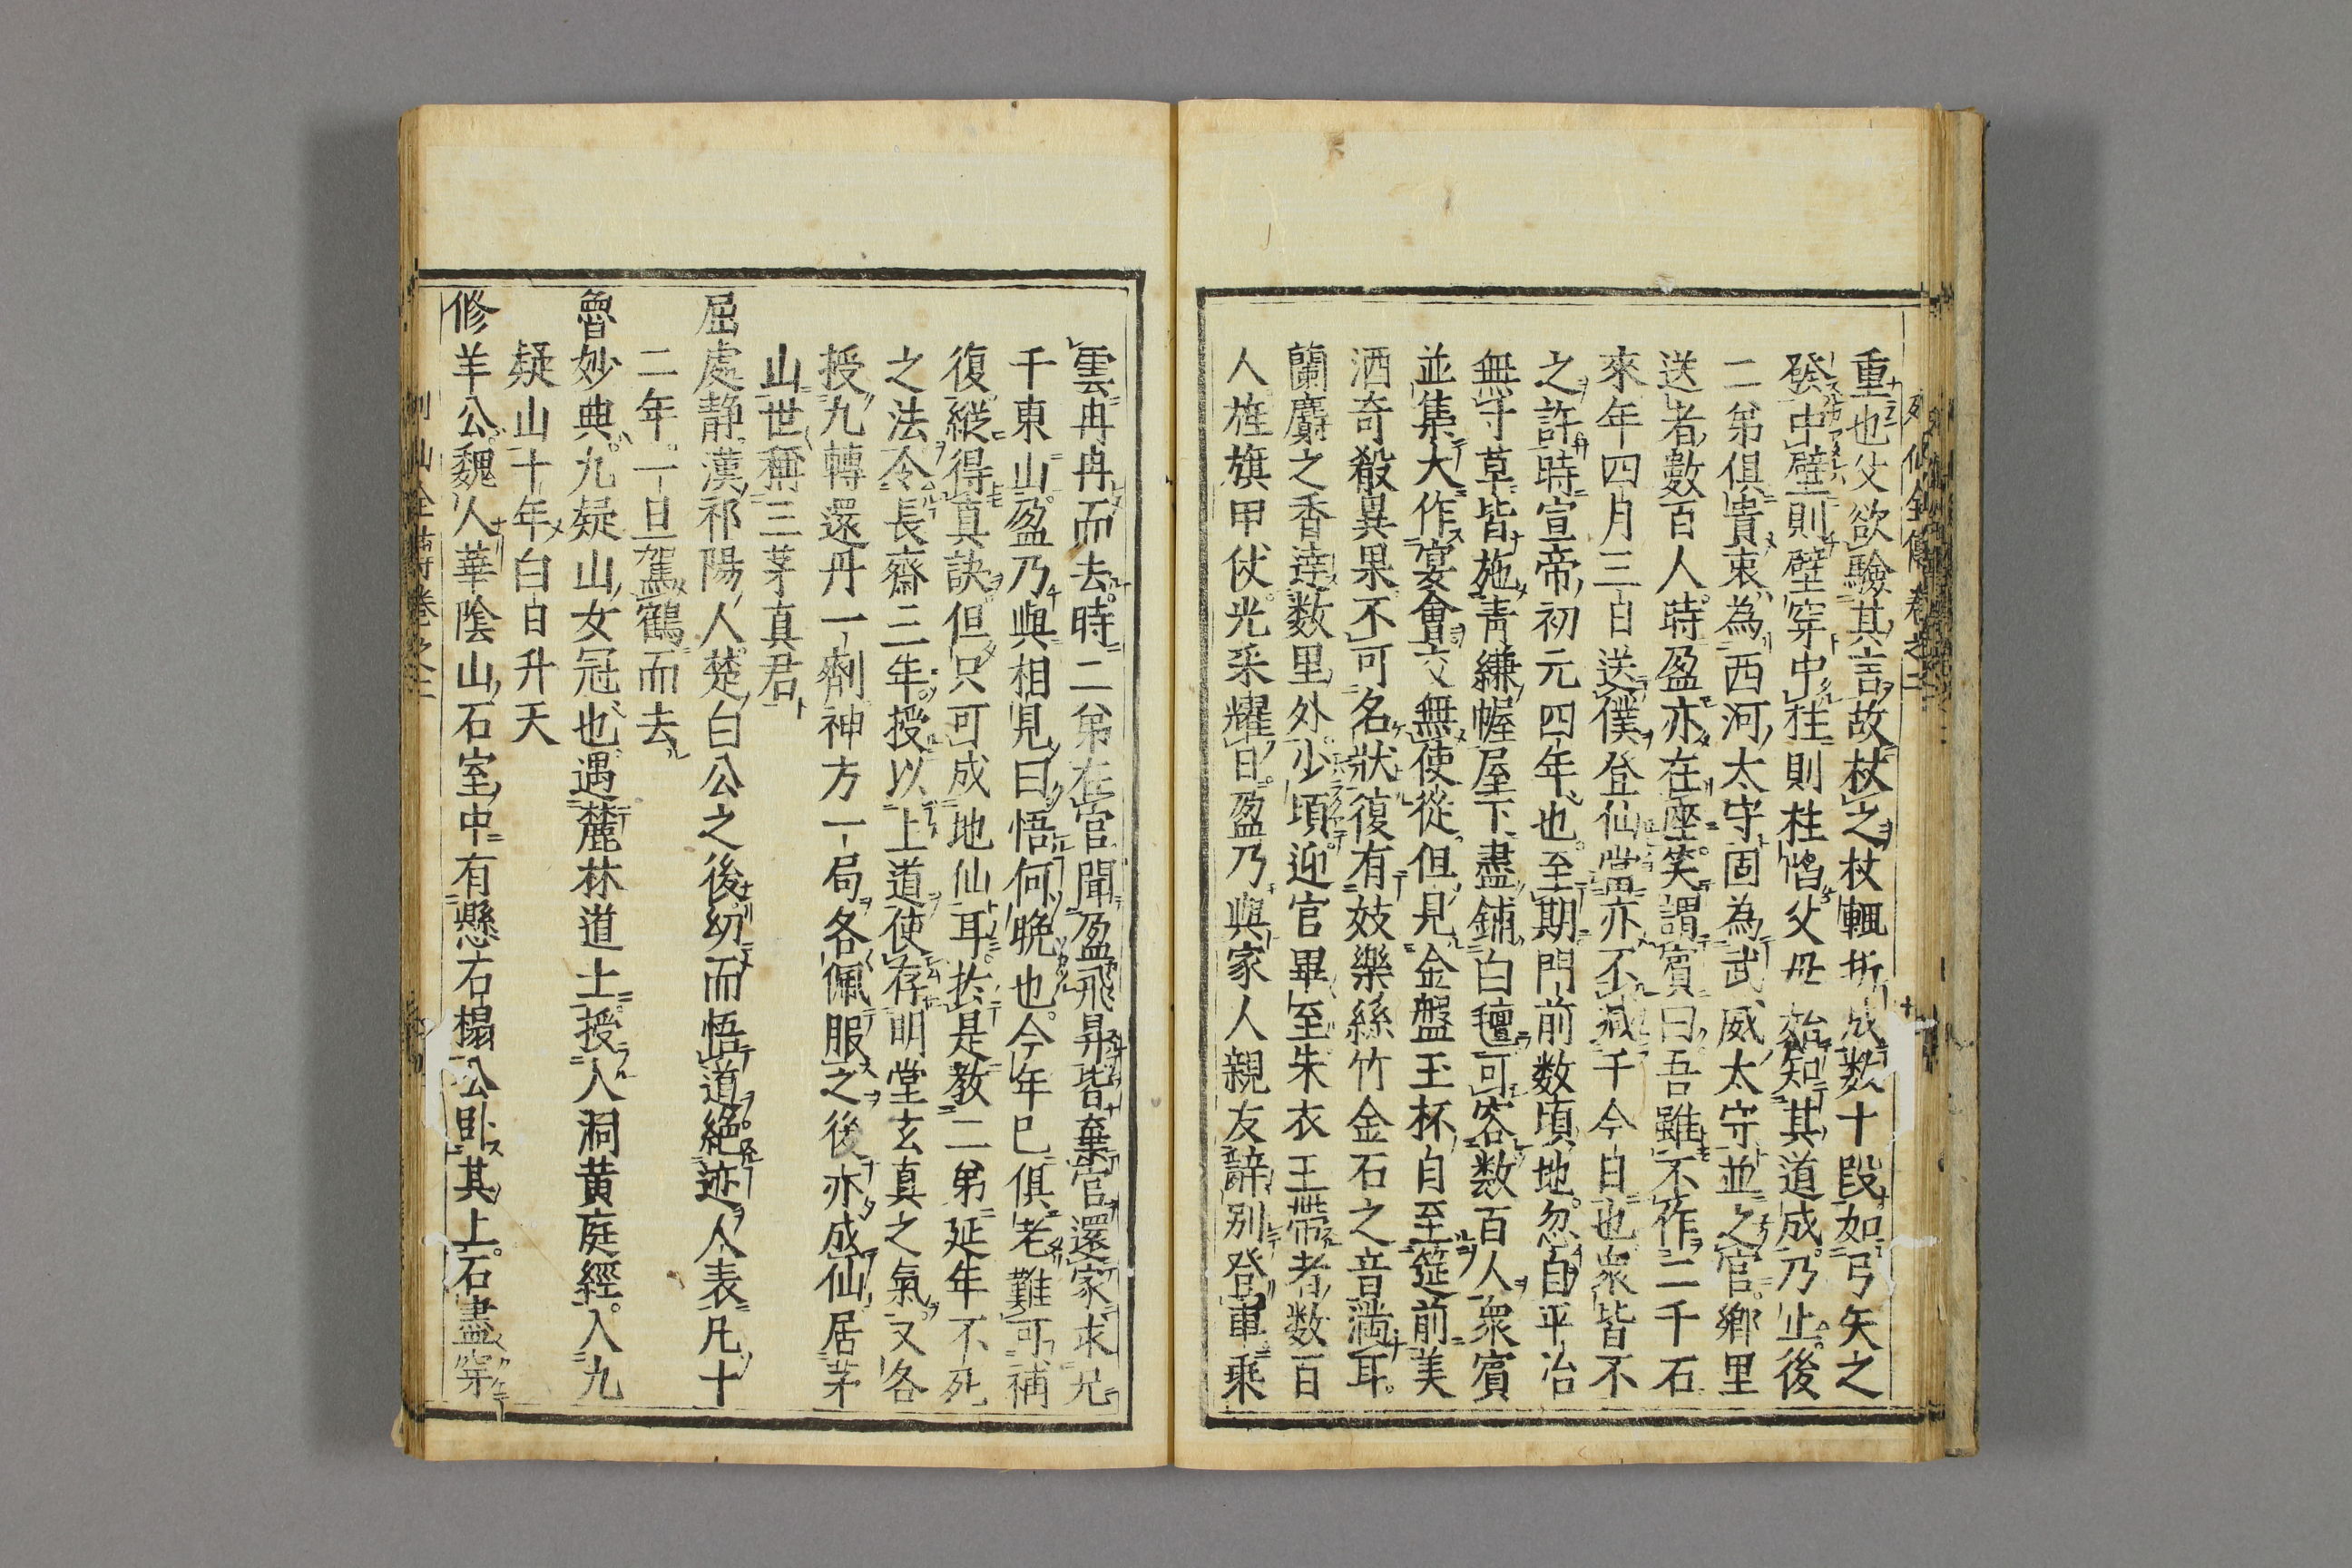 重也父欲驗其言故杖之杖輒折成数十段如弓矢之
發中壁則壁穿中柱則柱㿽父母始知其道成乃止後
二弟俱貴衷為西河太守固為武威太守並之官鄉里
送者數百人時盈亦在座笑謂賓曰吾雖不作二千石
來年四月三日送僕登仙當亦不减千今日也衆皆不
之許時宣帝初元四年也至期門前数頃地忽自平治
無寸草皆施青縑幄屋下盡鋪白氊可容数百人衆賓
並集大作宴會立無使從但見金盤玉杯自至筵前美
酒奇殽異果不可名狀復有妓樂絲竹金石之音滿耳
蘭麝之香達数里外少頃迎官畢至朱衣王帶者数百
人旌旗甲仗光采耀日盈乃與家人親友辝別登車乘
雲冉冉而去時二弟在官聞盈飛昇皆棄官還家求兄
千東山盈乃與相見曰悟何晩也今年已俱老難可補
復縱得真訣但只可成地仙耳於是教二弟延年不死
之法令長齋三年授以上道使存明堂玄真之氣又各
授九轉還丹一劑神方一局各佩服之後亦成仙居茅
山世稱三茅真君
屈處静漢祁陽人楚白公之後幼而悟道絕迹人表凡十
二年一旦駕鶴而去
魯妙典九疑山女冠也遇麓林道士授入洞黄庭經入九
疑山十年白日升天
修羊公魏人華陰山石室中有懸石榻公卧其上石盡穿